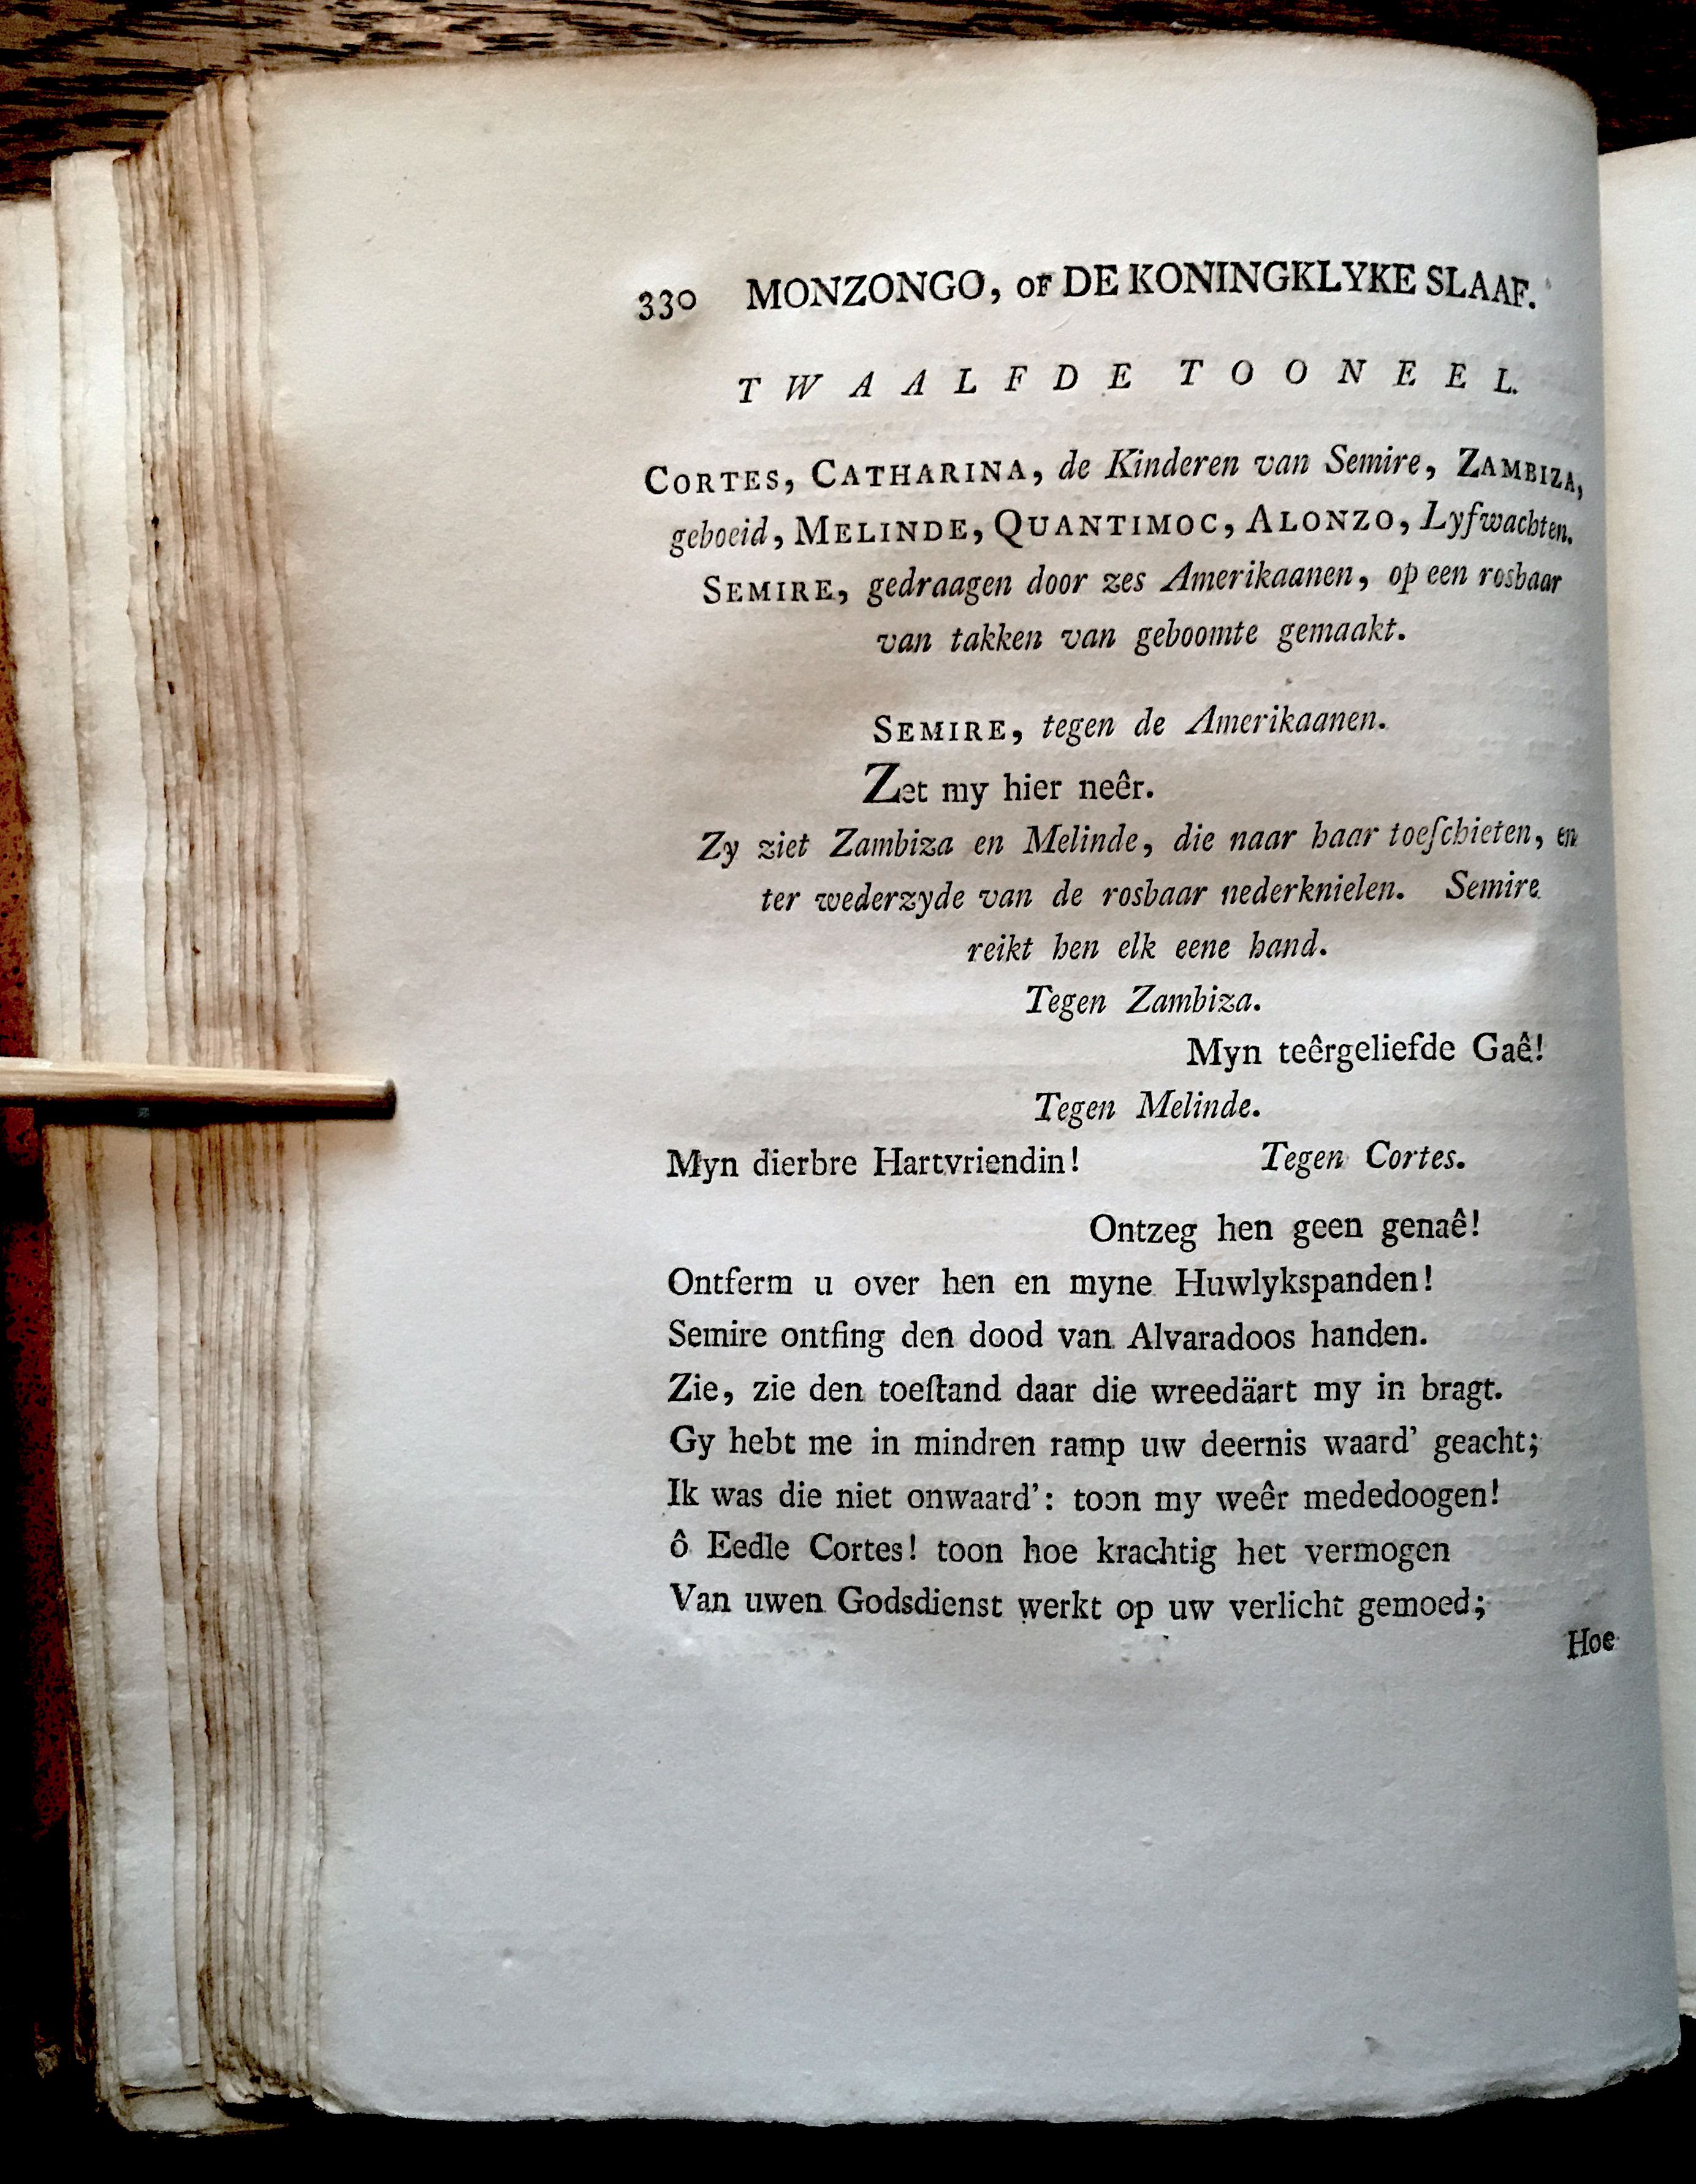 330 MONZONGO, OF DE KONINGKLYKE SLAAF.
TWAALFDE TOONEEL.
CORTES, CATHARINA, de Kinderen van Semire, ZAMBIZA,
geboeid, MELINDE, QUANTIMOC, ALONZO, Lyfwachten.
SEMIRE, gedraagen door zes Amerikaanen, op een rosbaar
van takken van geboomte gemaakt.
SEMIRE, tegen de Amerikaanen.
Zet my hier neêr.
Zy ziet Zambiza en Melinde, die naar haar toeſchieten, en
ter wederzyde van de rosbaar nederknielen. Semire
reikt hen elk eene hand.
Tegen Zambiza.
Myn teêrgeliefde Gaê!
Tegen Melinde.
Myn dierbre Hartvriendin! Tegen Cortes.
Ontzeg hen geen genaê!
Ontferm u over hen en myne Huwlykspanden!
Semire ontfing den dood van Alvaradoos handen.
Zie, zie den toeſtand daar die wreedäart my in bragt.
Gy hebt me in mindren ramp uw deernis waard' geacht;
Ik was die niet onwaard': toon my weêr mededoogen!
ô Eedle Cortes! toon hoe krachtig het vermogen
Van uwen Godsdienst werkt op uw verlicht gemoed;
Hoe